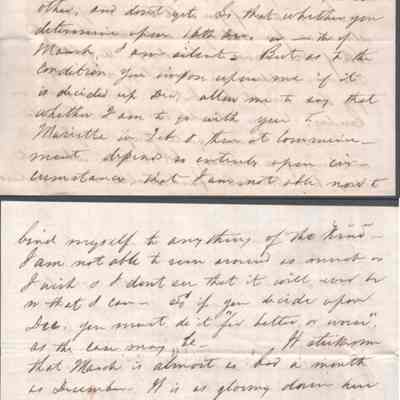 other, and don't yet. So that whether you
determine upon Dec. or of
March, I am silent. But as to the
condition you impose upon me if it
is decided up Dec. allow me to say that
whether I am to go with you to
Marietta in Feb & then at Commence-
ment, depends so entirely upon cir-
cumstance that I am not able now to
bind myself to anything of the kind -
I am not able to run around as much as
I wish & I don't see that it will ever be
so that I can - So if you decide upon
Dec. you must do it "for better or worse",
as the case may be - It strikes me
that March is almost as bad a month
as December. It is as gloomy down here